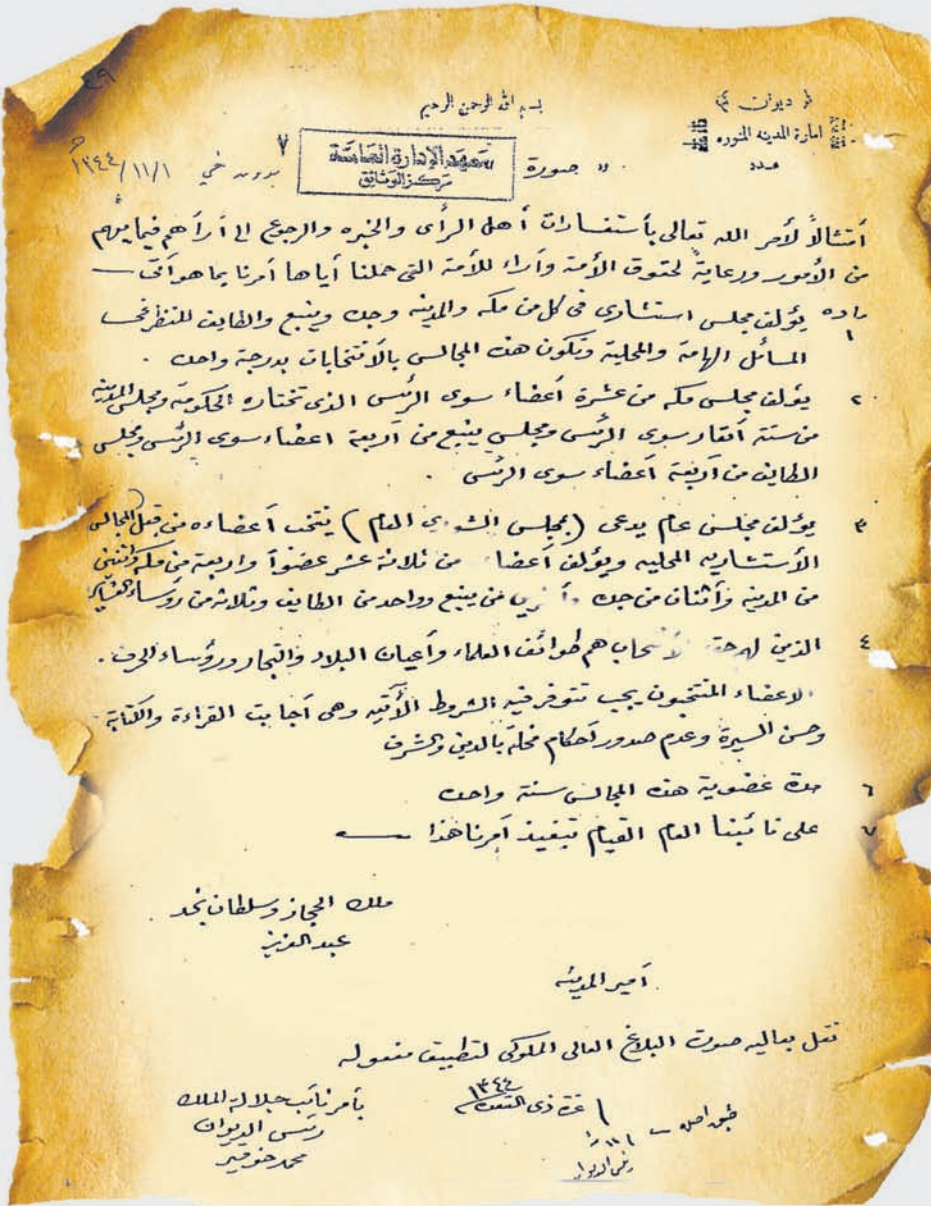 ٤٩
بسم الله الرحمن الرحيم
ديوان
امارة المدينه المنوره
عدد
صورة
معهد الإدارة العامة
مركز الوثائق
٧
في ١٣٤٤/١١/١
أمتثالاً لأمر الله تعالى بأستفسارات أهل الرأى والخبره والرجوع الى أرآهم فيما يهم
من الأمور ورعايةً لحقوق الأمة وأراء للأمة التى حملنا أياها أمرنا بما هو آت
ماده ١ يؤلف مجلس استشارى فى كل من مكه والمدينه وجده وينبع والطايف للنظر فى
المسائل الهامة والمحلية وتكون هذه المجالس بالأنتخابات بدرجة واحده .
٢ يؤلف مجلس مكه من عشرة أعضاء سوى الرئيس الذى تختاره الحكومة ومجلس المدينه
من ستة أنفار سوى الرئيس ومجلس ينبع من أربعة اعضاء سوى الرئيس ومجلس
الطايف من أربعة أعضاء سوى الرئيس .
٣ يؤلف مجلس عام يدعى (مجلس الشورى العام) ينتخب أعضاءه من قبل المجالس
الأستشاريه المحليه ويؤلف أعضاء من ثلاثة عشر عضواً واربعة من مكه وأثنين
من المدينه وأثنان من جده من ينبع وواحد من الطايف وثلاثه من رؤساء القبائل
٤ الذين لهم حق الأنتخاب هم طوائف العلماء وأعيان البلاد والتجار ورؤساء الحرف .
الاعضاء المنتخبون يجب تتوفر فيه الشروط الأتيه وهى أجابت القراءة والكتابة
وحسن السيرة وعدم صدور أحكام مخلة بالدين والشرف
٦ مدة عضوية هذه المجالس سنة واحده
٧ على نائبنا العام القيام بتنفيذ أمرنا هذا
ملك الحجاز وسلطان نجد
عبد العزيز
أمير المدينه
نقل بعاليه صورت البلاغ العالى الملوكى لتطبيق مفعوله
١ غرة ذى القعده ١٣٤٤
بأمر نائب جلالة الملك
رئيس الديوان
محمد
طبق اصله